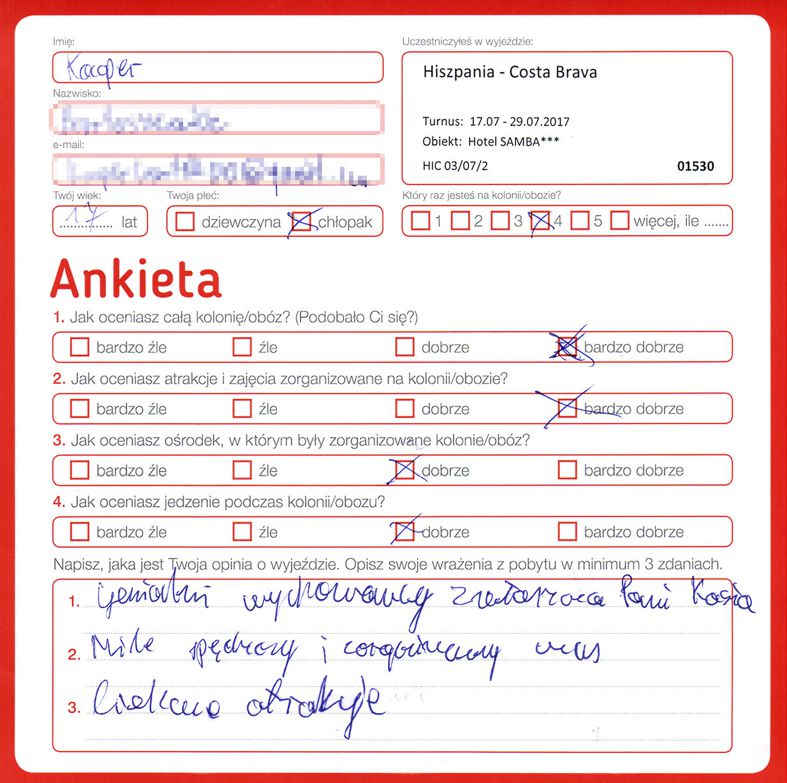 Imię:
Kacper
Uczestniczyłeś w wyjeździe:
Hiszpania - Costa Brava
Turnus: 17.07 - 29.07.2017
Obiekt: Hotel SAMBA***
HIC 03/07/2
01530
Nazwisko:
e-mail:
Twój wiek:
17 lat
Twoja płeć:
dziewczyna chłopak
Który raz jesteś na kolonii/obozie?
1 2 3 4 5 więcej, ile .......
Ankieta
1. Jak oceniasz całą kolonię/obóz? (Podobało Ci się?)
bardzo źle źle dobrze bardzo dobrze
2. Jak oceniasz atrakcje i zajęcia zorganizowane na kolonii/obozie?
bardzo źle źle dobrze bardzo dobrze
3. Jak oceniasz ośrodek, w którym były zorganizowane kolonie/obóz?
bardzo źle źle dobrze bardzo dobrze
4. Jak oceniasz jedzenie podczas kolonii/obozu?
bardzo źle źle dobrze bardzo dobrze
Napisz, jaka jest Twoja opinia o wyjeździe. Opisz swoje wrażenia z pobytu w minimum 3 zdaniach.
1. Genialni wychowawcy zwłaszcza Pani Kasia
2. Mile spędzony i zorganizowany czas
3. Ciekawe atrakcje